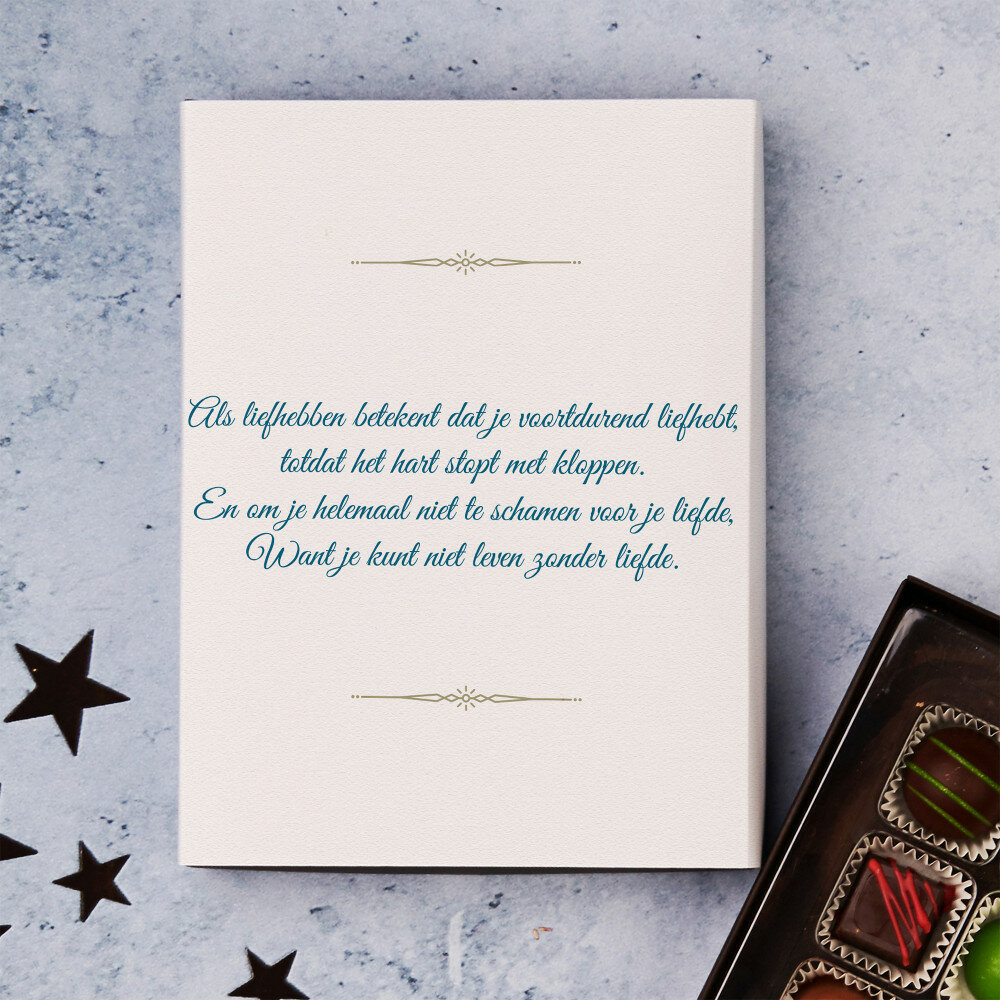 Als liefhebben betekent dat je voortdurend liefhebt,
totdat het hart stopt met kloppen.
En om je helemaal niet te schamen voor je liefde,
Want je kunt niet leven zonder liefde.